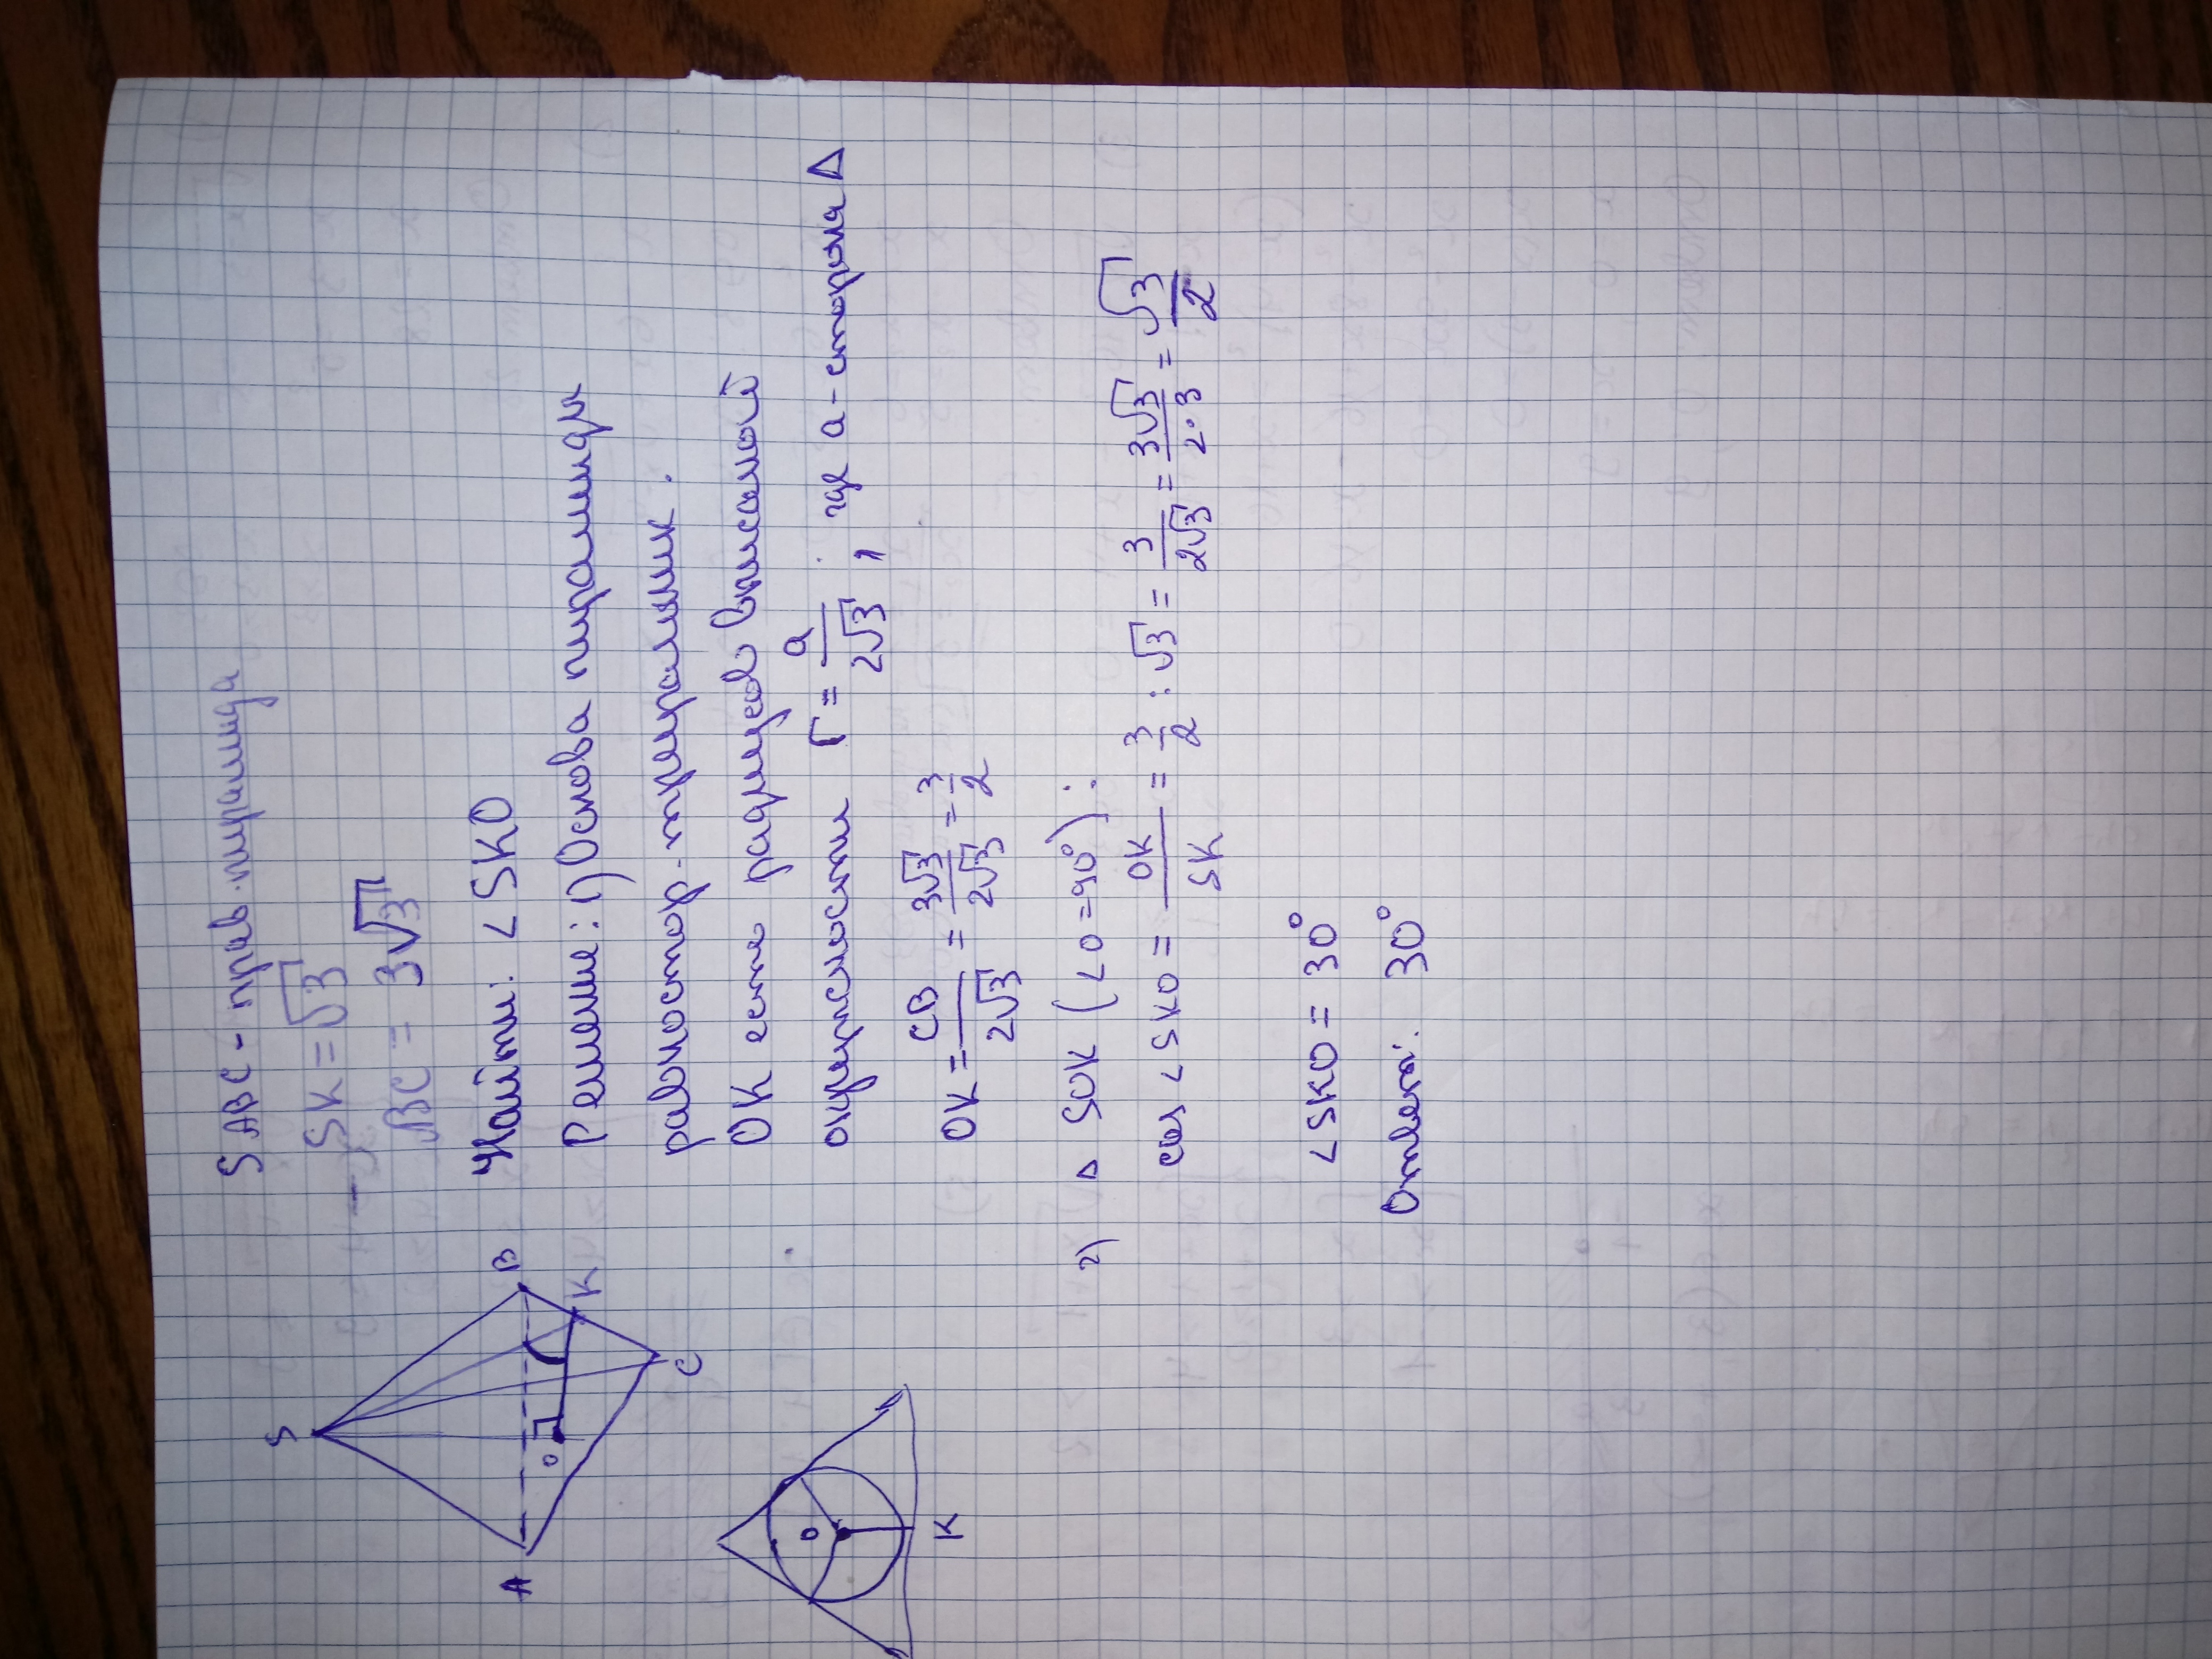 SABC - прав. пирамида
SK = √3
BC = 3√3
Найти: ∠SKO
Решение: 1) Основа пирамиды
равносторон. треугольник.
OK есть радиусов вписанной
окружности r = a/2√3, где a - сторона Δ
OK = CB/2√3 = 3√3/2√3 = 3/2
2) Δ SOK (∠O = 90°):
cos ∠SKO = OK/SK = 3/2 : √3 = 3/2√3 = 3√3/2·3 = √3/2
∠SKO = 30°
Ответ: 30°
S
A
B
K
C
O
O
K